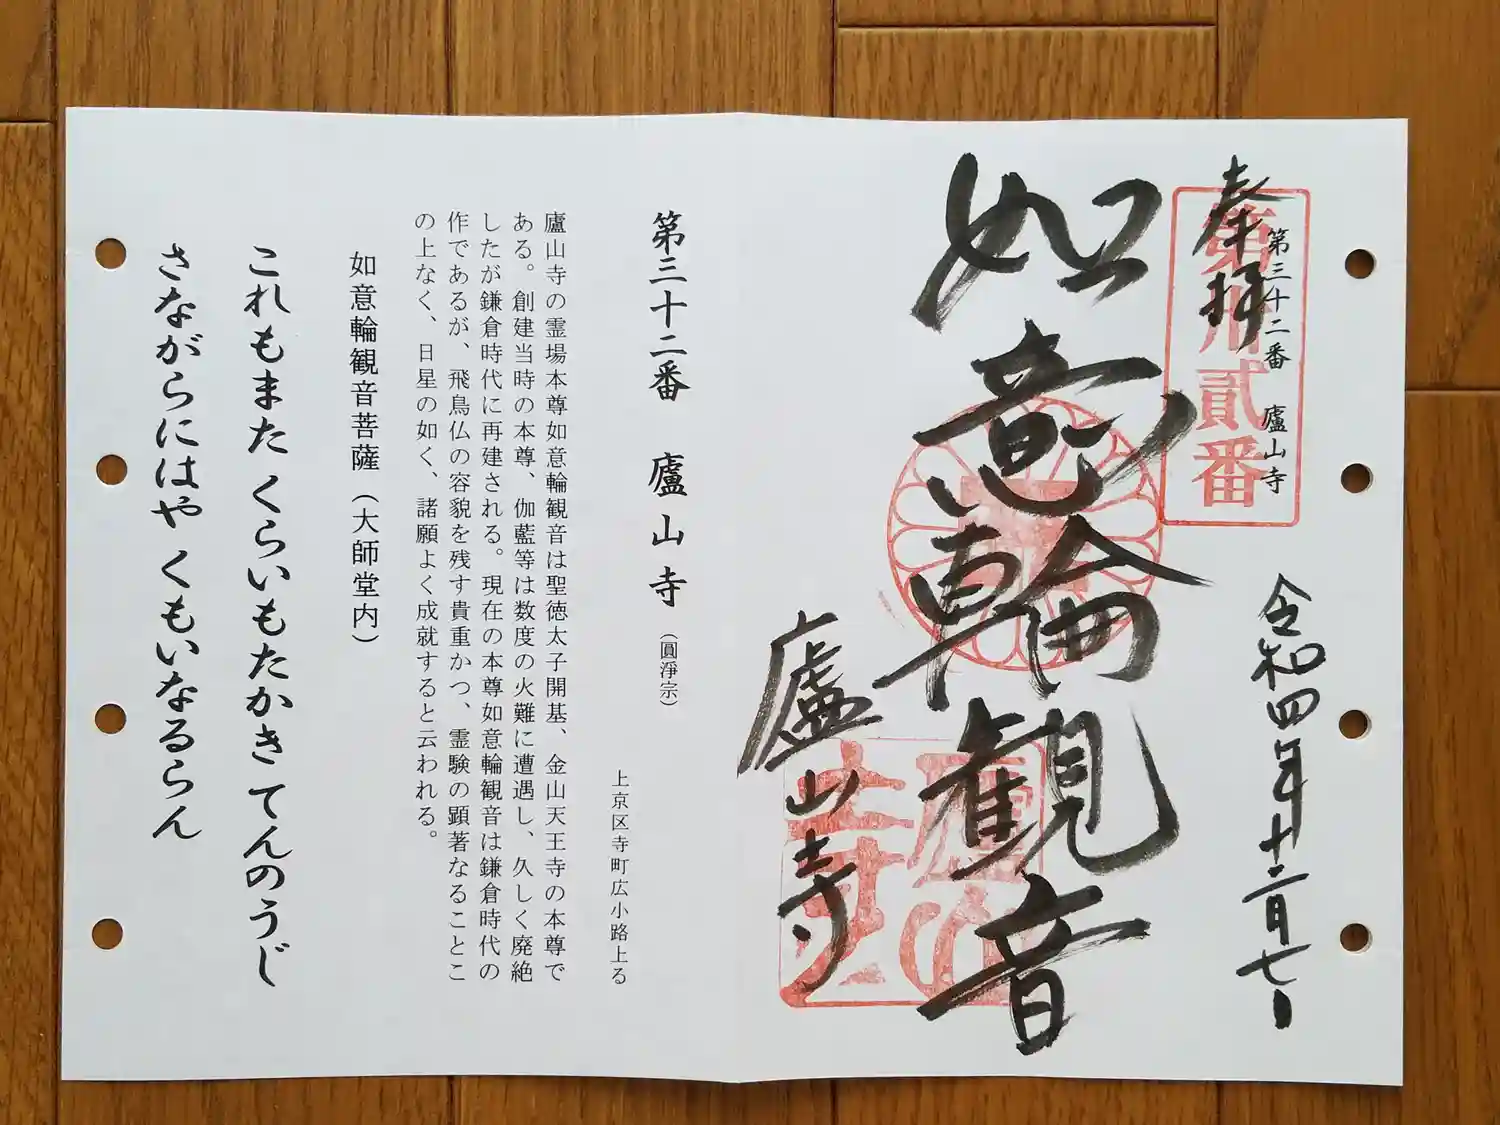 奉拝
第三十二番 廬山寺
第卅貳番
令和四年十二月七日
如意輪観音
廬山寺
第三十二番 廬山寺（圓淨宗）
上京区寺町広小路上る
廬山寺の霊場本尊如意輪観音は聖徳太子開基、金山天王寺の本尊で
ある。創建当時の本尊、伽藍等は数度の火難に遭遇し、久しく廃絶
したが鎌倉時代に再建される。現在の本尊如意輪観音は鎌倉時代の
作であるが、飛鳥仏の容貌を残す貴重かつ、霊験の顕著なることこ
の上なく、日星の如く、諸願よく成就すると云われる。
如意輪観音菩薩（大師堂内）
これもまた くらいもたかき てんのうじ
さながらにはや くもいなるらん